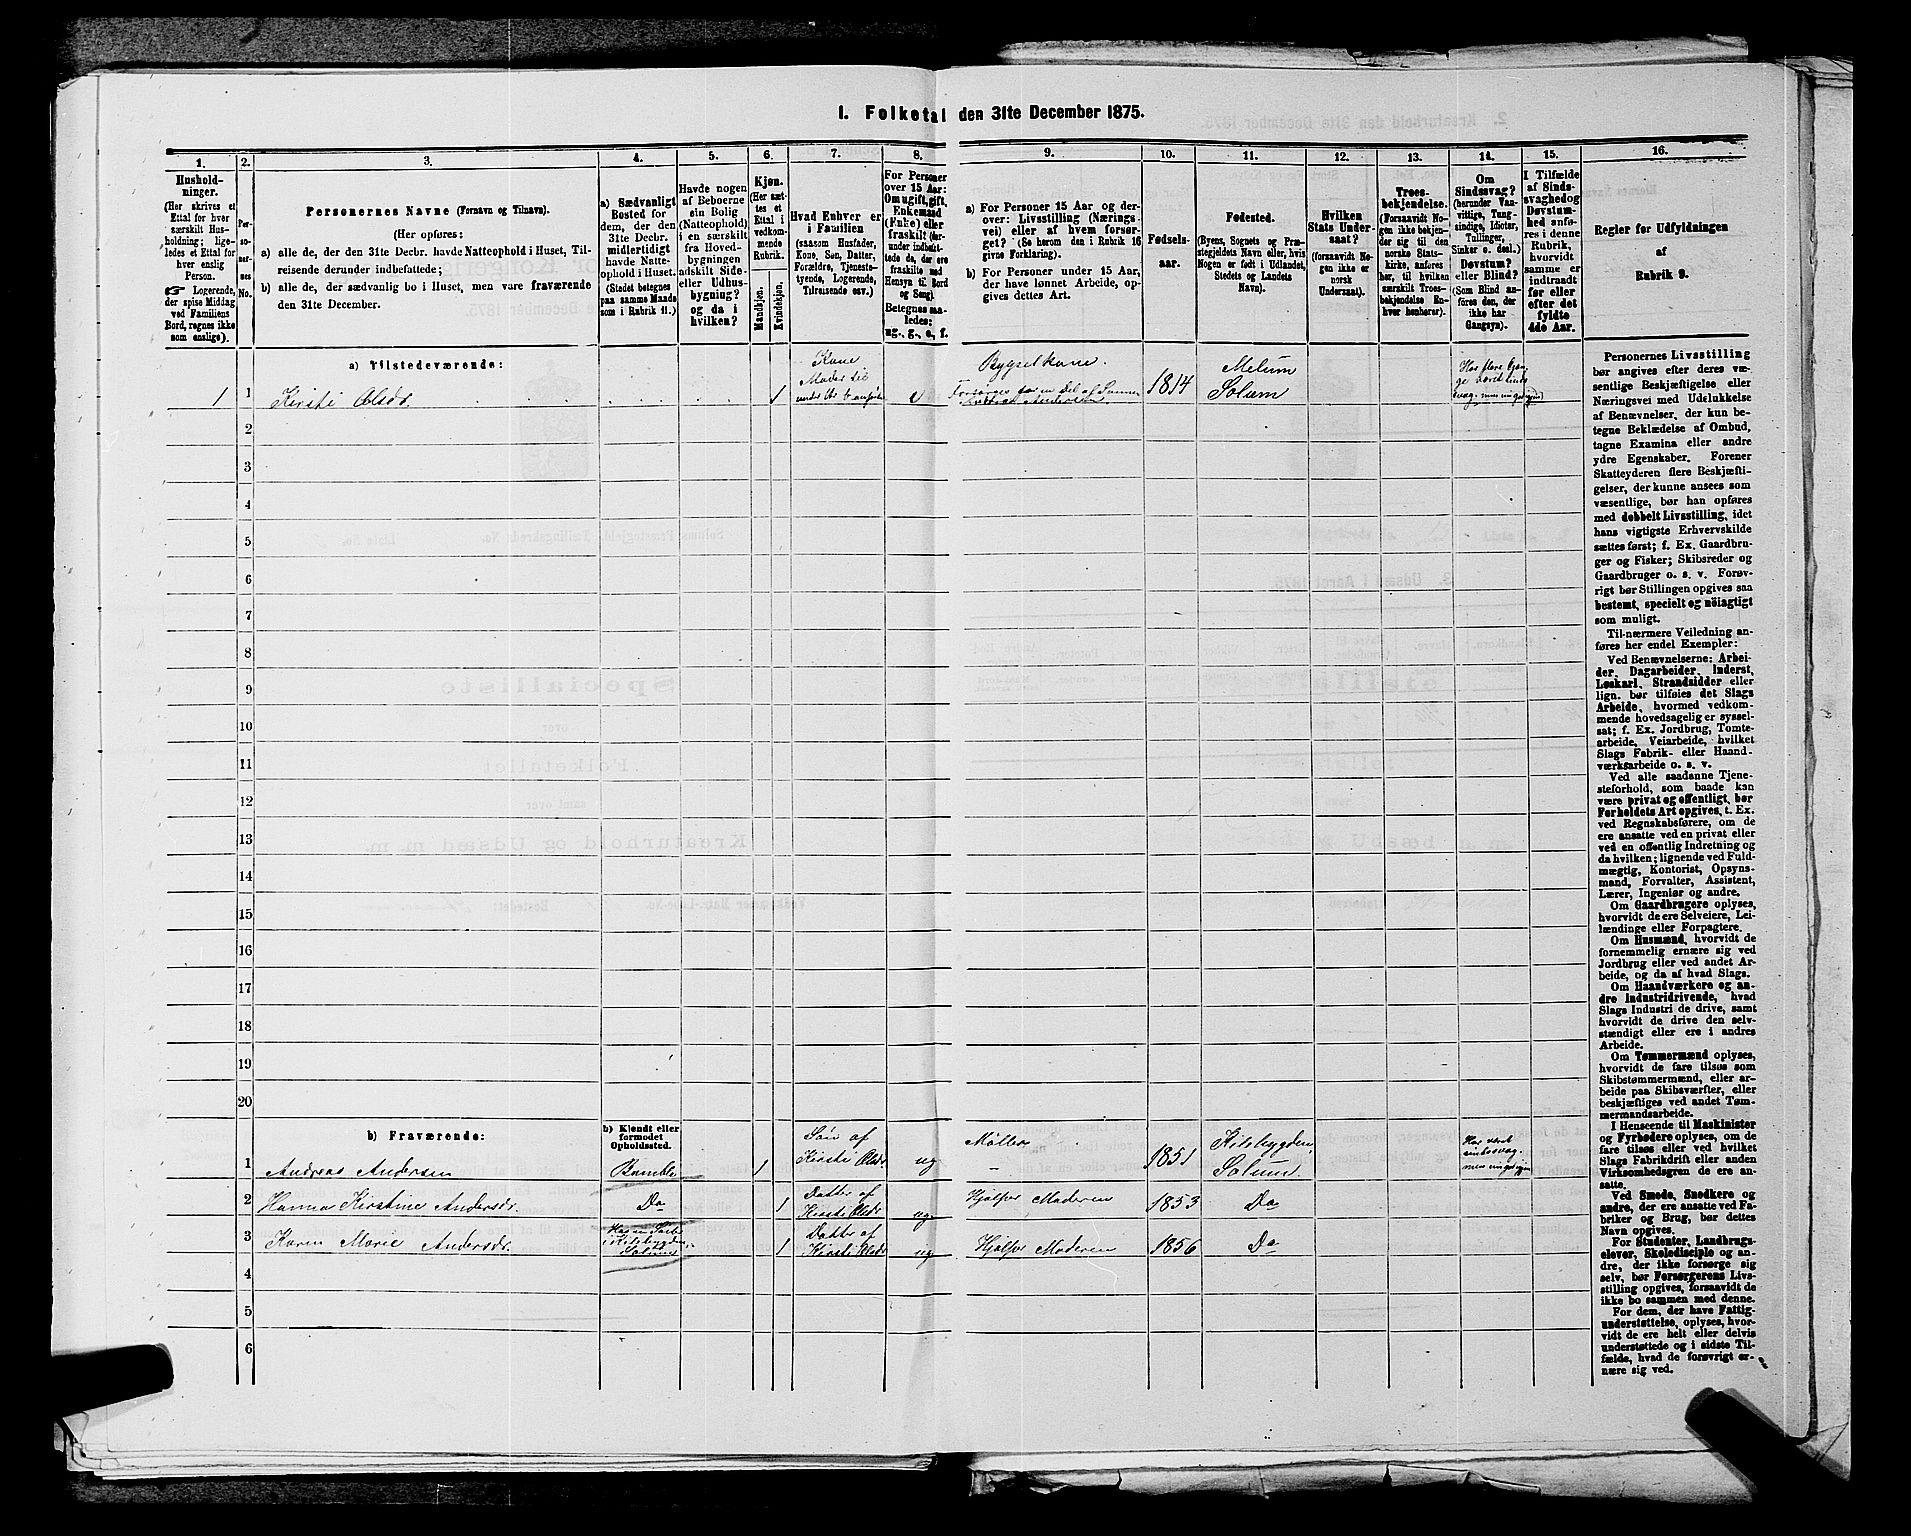 1. Folketal den 31te December 1875.
1.
2.
3.
4.
5.
6.
7.
8.
9.
10.
11.
12.
13.
14.
15.
16.
Hushold-
ninger.
(Her skrives et
Ettal for hver
særskilt Hus-
holdning; lige-
ledes et Ettal for
hver enslig
Person.
☞ Logerende,
der spise Middag
ved Familiens
Bord, regnes ikke
som enslige).
Per-
so-
ner-
nes
No.
Personernes Navne (Fornavn og Tilnavn).
(Her opføres:
a) alle de, der den 31te Decbr. havde Natteophold i Huset, Til-
reisende derunder indbefattede;
b) alle de, der sædvanlig bo i Huset, men vare fraværende
den 31te December.
a) Sædvanligt
Bosted for
dem, der den
31te Decbr.
midlertidigt
havde Natte-
ophold i Huset.
(Stedet betegnes
paa samme Maade
som i Rubrik 11.)
Havde nogen
af Beboerne
sin Bolig
(Natteophold)
i en særskilt
fra Hoved-
bygningen
adskilt Side-
eller Udhus-
bygning?
og da i
hvilken?
Kjøn.
(Her sæt-
tes et
Ettal i
vedkom-
mende
Rubrik.
Mandkjøn.
Kvindekjøn.
Hvad Enhver er
i Familien
(saasom Husfader,
Kone, Søn, Datter,
Forældre, Tjeneste-
tyende, Logerende,
Tilreisende osv.)
For Personer
over 15 Aar:
Om ugift, gift,
Enkemand
(Enke) eller
fraskilt (her-
under indbefat-
tede de, der ere
fraskilte med
Hensyn til Bord
og Seng).
Betegnes saa-
ledes:
ug., g., e., f.
a) For Personer 15 Aar og der-
over: Livsstilling (Nærings-
vei) eller af hvem forsør-
get? (Se herom den i Rubrik 16
givne Forklaring).
b) For Personer under 15 Aar,
der have lønnet Arbeide, op-
gives dettes Art.
Fødsels-
aar.
Fødested.
(Byens, Sognets og Præ-
stegjeldets Navn eller, hvis
Nogen er født i Udlandet,
Stedets og Landets
Navn).
Hvilken
Stats Under-
saat?
(forsaavidt No-
gen ikke er
norsk
Undersaat).
Troes-
bekjendelse.
(Forsaavidt No-
gen ikke bekjen-
der sig til den
norske Stats-
kirke, anføres
her, til hvilken
særskilt Troes-
bekjendelse En-
hver henhører).
Om
Sindssvag?
(herunder Van-
vittige, Tung-
sindige, Idioter,
Tullinger,
Sinker o. desl.)
Døvstum?
eller Blind?
(Som Blind an-
føres den, der
ikke har
Gangsyn).
I Tilfælde
af Sinds-
svaghed og
Døvstum-
hed anfø-
res i denne
Rubrik,
hvorvidt
samme er
indtraadt
før eller
efter det
fyldte
4de Aar.
Regler for Udfyldningen
af
Rubrik 9.
a) Tilstedeværende:
1 1 Kirsti Olsdr. 1
Kone
Moder til
e
Bygselkone.
1814
Melum
Solum
2
3
4
5
6
7
8
9
10
11
12
13
14
15
16
17
18
19
20
b) Fraværende:
b) Kjendt eller
formodet
Opholdssted.
1 Andreas Andersen Bamble 1
Søn af
Kirsti Olsdr
ug
Møller
1851
Kilebygden,
Solum.
2 Hanna Kirstine Andersdr. Do 1
Datter af
Kirsti Olsdr
ug
Hjælper Moderen 1853 Do
3 Karen Marie Andersdr.
Kilebygden,
Solum
1
Datter af
Kirsti Olsdr
ug
Hjælper Moderen 1856 Do
4
5
6
Personernes Livsstilling
bør angives efter deres væ-
sentlige Beskjæftigelse eller
Næringsvei med Udelukkelse
af Benævnelser, der kun be-
tegne Beklædelse af Ombud,
tagne Examina eller andre
ydre Egenskaber. Forener
Skatteyderen flere Beskjæfti-
gelser, der kunne ansees som
væsentlige, bør han opføres
med dobbelt Livsstilling, idet
hans vigtigste Erhvervskilde
sættes først; f. Ex. Gaardbru-
ger og Fisker; Skibsreder og
Gaardbruger o. s. v. Forøv-
rigt bør Stillingen opgives saa
bestemt, specielt og nöiagtigt
som muligt.
Til nærmere Veiledning an-
føres her endel Exempler:
Ved Benævnelserne: Arbei-
der, Dagarbeider, Inderst,
Løskarl, Strandsidder eller
lign. bør tilføies det Slags
Arbeide, hvormed vedkom-
mende hovedsagelig er syssel-
sat; f. Ex. Jordbrug, Tomte-
arbeide, Veiarbeide, hvilket
Slags Fabrik- eller Haand-
værksarbeide o. s. v.
Ved alle saadanne Tjene-
steforhold, som baade kan
være privat og offentligt, bør
Forholdets Art opgives, t. Ex.
ved Regnskabsførere, om de
ere ansatte ved en privat eller
ved en offentlig Indretning og
da hvilken; lignende ved Fuld-
mægtig, Kontorist, Opsyns-
mand, Forvalter, Assistent,
Lærer, Ingeniør og andre.
Om Gaardbrugere oplyses,
hvorvidt de ere Selveiere, Lei-
lændinge eller Forpagtere.
Om Husmænd, hvorvidt de
fornemmelig ernære sig ved
Jordbrug eller ved andet Ar-
beide, og da af hvad Slags.
Om Haandværkere og an-
dre Industridrivende, hvad
Slags Industri de drive, samt
hvorvidt de drive den selv-
stændigt eller ere i andres
Arbeide.
Om Tømmermænd oplyses,
hvorvidt de fare tilsøs som
Skibstømmermænd, eller ar-
beide paa Skibsværfter, eller
beskjæftiges ved andet Tøm-
mermandsarbeide.
I Henseende til Maskinister
og Fyrbødere oplyses, om de
fare tilsøs eller ved hvilket
Slags Fabrikdrift eller anden
Virksomhedsgren de ere an-
satte.
Ved Smede, Snedkere og
andre, der ere ansatte ved Fa-
briker og Brug, bør dettes
Navn opgives.
For Studenter, Landbrugs-
elever, Skoledisciple og an-
dre, der ikke forsørge sig
selv, bør Forsørgerens Livs-
stilling opgives, forsaavidt de
ikke bo sammen med denne.
For dem, der have Fattig-
understøttelse, oplyses, hvor-
vidt de ere helt eller delvis
understøttede og i sidste Til-
fælde, hvad de forøvrigt er-
nære sig ved.